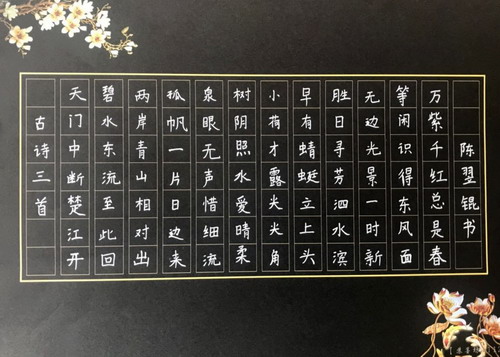 古诗三首
天门中断楚江开
碧水东流至此回
两岸青山相对出
孤帆一片日边来
泉眼无声惜细流
树阴照水爱晴柔
小荷才露尖尖角
早有蜻蜓立上头
胜日寻芳泗水滨
无边光景一时新
等闲识得东风面
万紫千红总是春
陈翌锟书